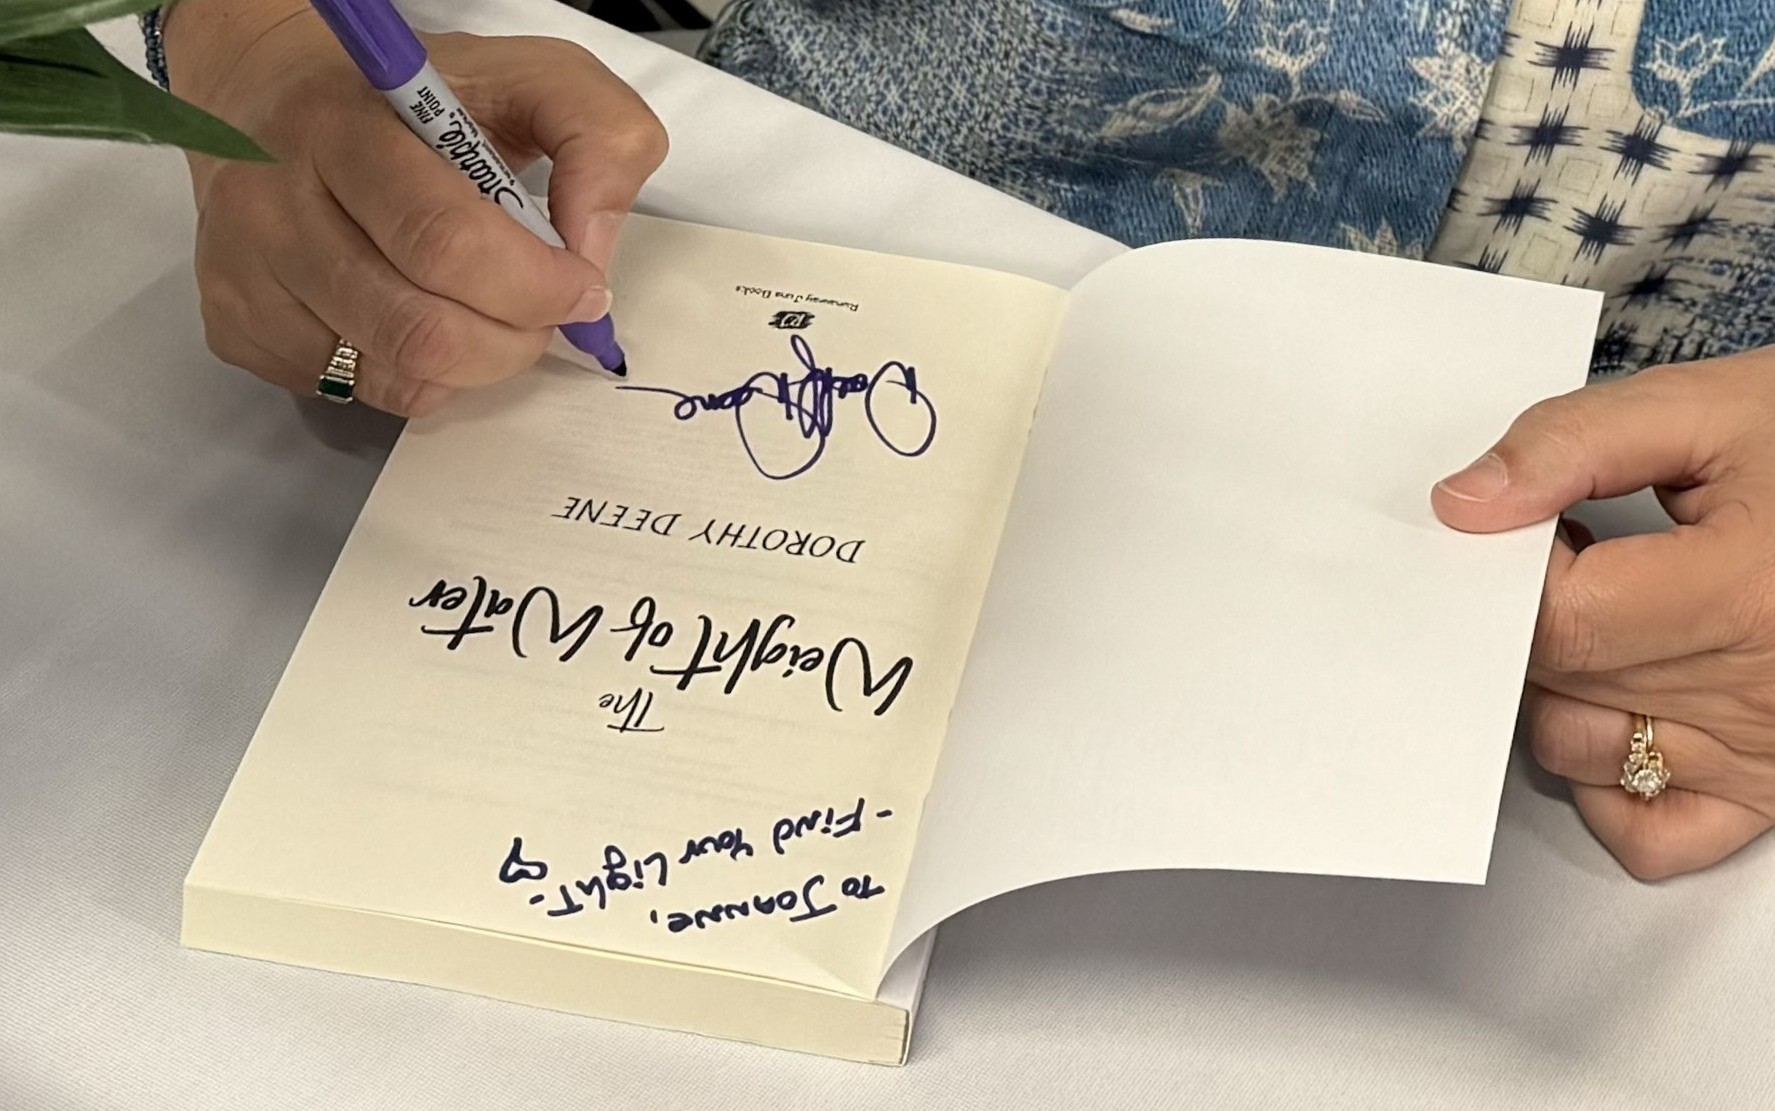 To Joanne,
- Find Your Light - ♡
The
Weight of Water
DOROTHY DEENE
Dorothy Deene
RJ
Runaway Juno Books
Sharpie
FINE
POINT